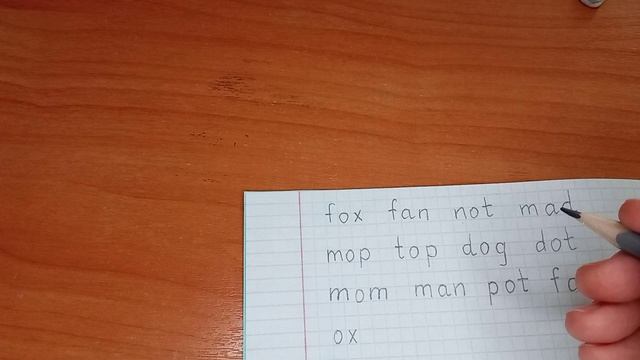 fox fan not mad
mop top dog dot
mom man pot
ox